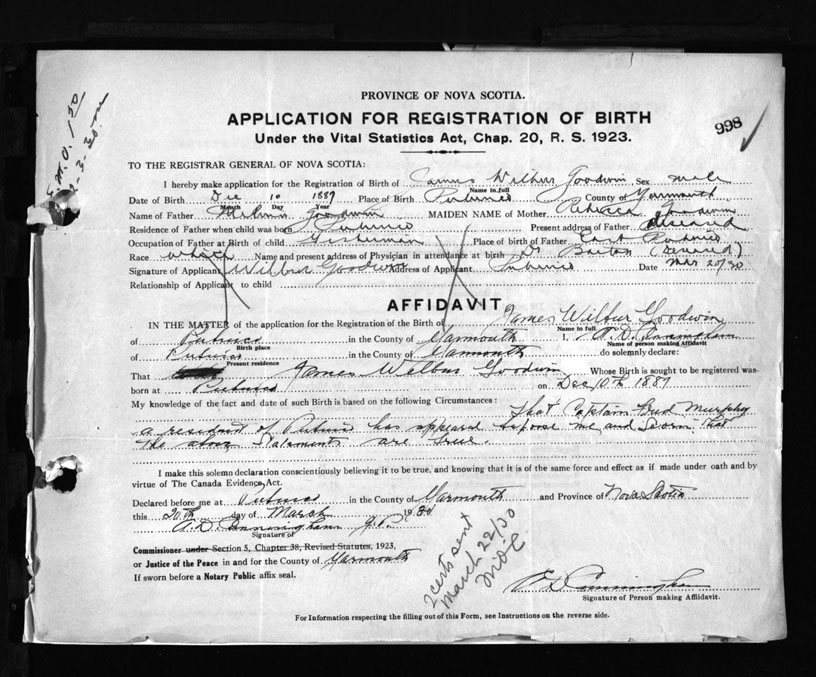 PROVINCE OF NOVA SCOTIA.
APPLICATION FOR REGISTRATION OF BIRTH
Under the Vital Statistics Act, Chap. 20, R. S. 1923.
998
TO THE REGISTRAR GENERAL OF NOVA SCOTIA:
I hereby make application for the Registration of Birth of James Wilbur Goodwin Sex male
Name in full
Date of Birth Dec 10 1887 Place of Birth Pubnico County of Yarmouth
Month Day Year
Name of Father Goodwin MAIDEN NAME of Mother Rebecca Goodwin
Residence of Father when child was born Pubnico Present address of Father
Occupation of Father at Birth of child Fisherman Place of birth of Father East Pubnico
Race white Name and present address of Physician in attendance at birth Dr
Signature of Applicant Wilbur Goodwin Address of Applicant Pubnico Date Mar 20/30
Relationship of Applicant to child
AFFIDAVIT
IN THE MATTER of the application for the Registration of the Birth of James Wilbur Goodwin
Name in full
of Pubnico in the County of Yarmouth I, A. D. Cunningham
Birth place Name of person making Affidavit
of Pubnico in the County of Yarmouth do solemnly declare:
Present residence
That James Wilbur Goodwin Whose Birth is sought to be registered was
born at Pubnico on Dec 10th 1887
My knowledge of the fact and date of such Birth is based on the following Circumstances: That Captain Bud Murphy
a resident of Pubnico has appeared before me and Sworn that
the above Statements are true.
I make this solemn declaration conscientiously believing it to be true, and knowing that it is of the same force and effect as if made under oath and by
virtue of The Canada Evidence Act.
Declared before me at Pubnico in the County of Yarmouth and Province of Nova Scotia
this 20th day of March 1930
A. D. Cunningham J.P.
Signature of
Commissioner under Section 5, Chapter 38, Revised Statutes, 1923,
or Justice of the Peace in and for the County of Yarmouth
If sworn before a Notary Public affix seal.
2 certs sent
March 22/30
A D Cunningham
Signature of Person making Affidavit.
For Information respecting the filling out of this Form, see Instructions on the reverse side.